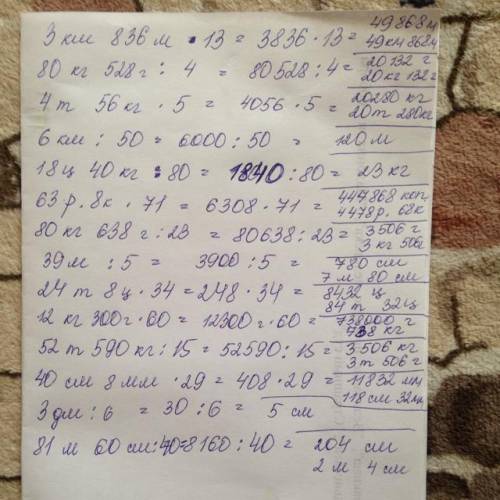 3 км 836 м · 13 = 3836 · 13 = 49868 м
49 км 868 м
80 кг 528 г : 4 = 80528 : 4 = 20132 г
20 кг 132 г
4 т 56 кг · 5 = 4056 · 5 = 20280 кг
20 т 280 кг
6 км : 50 = 6000 : 50 = 120 м
18 ц 40 кг : 80 = 1840 : 80 = 23 кг
63 р. 8 к · 71 = 6308 · 71 = 447868 коп,
4478 р. 68 к
80 кг 638 г : 23 = 80638 : 23 = 3506 г
3 кг 506 г
39 м : 5 = 3900 : 5 = 780 см
7 м 80 см
24 т 8 ц · 34 = 248 · 34 = 8432 ц
84 т 32 ц
12 кг 300 г · 60 = 12300 г · 60 = 738000 г
738 кг
52 т 590 кг : 15 = 52590 : 15 = 3506 кг
3 т 506 г
40 см 8 мм · 29 = 408 · 29 = 11832 мм
118 см 32
3 дм : 6 = 30 : 6 = 5 см
81 м 60 см : 40 = 8160 : 40 = 204 см
2 м 4 см